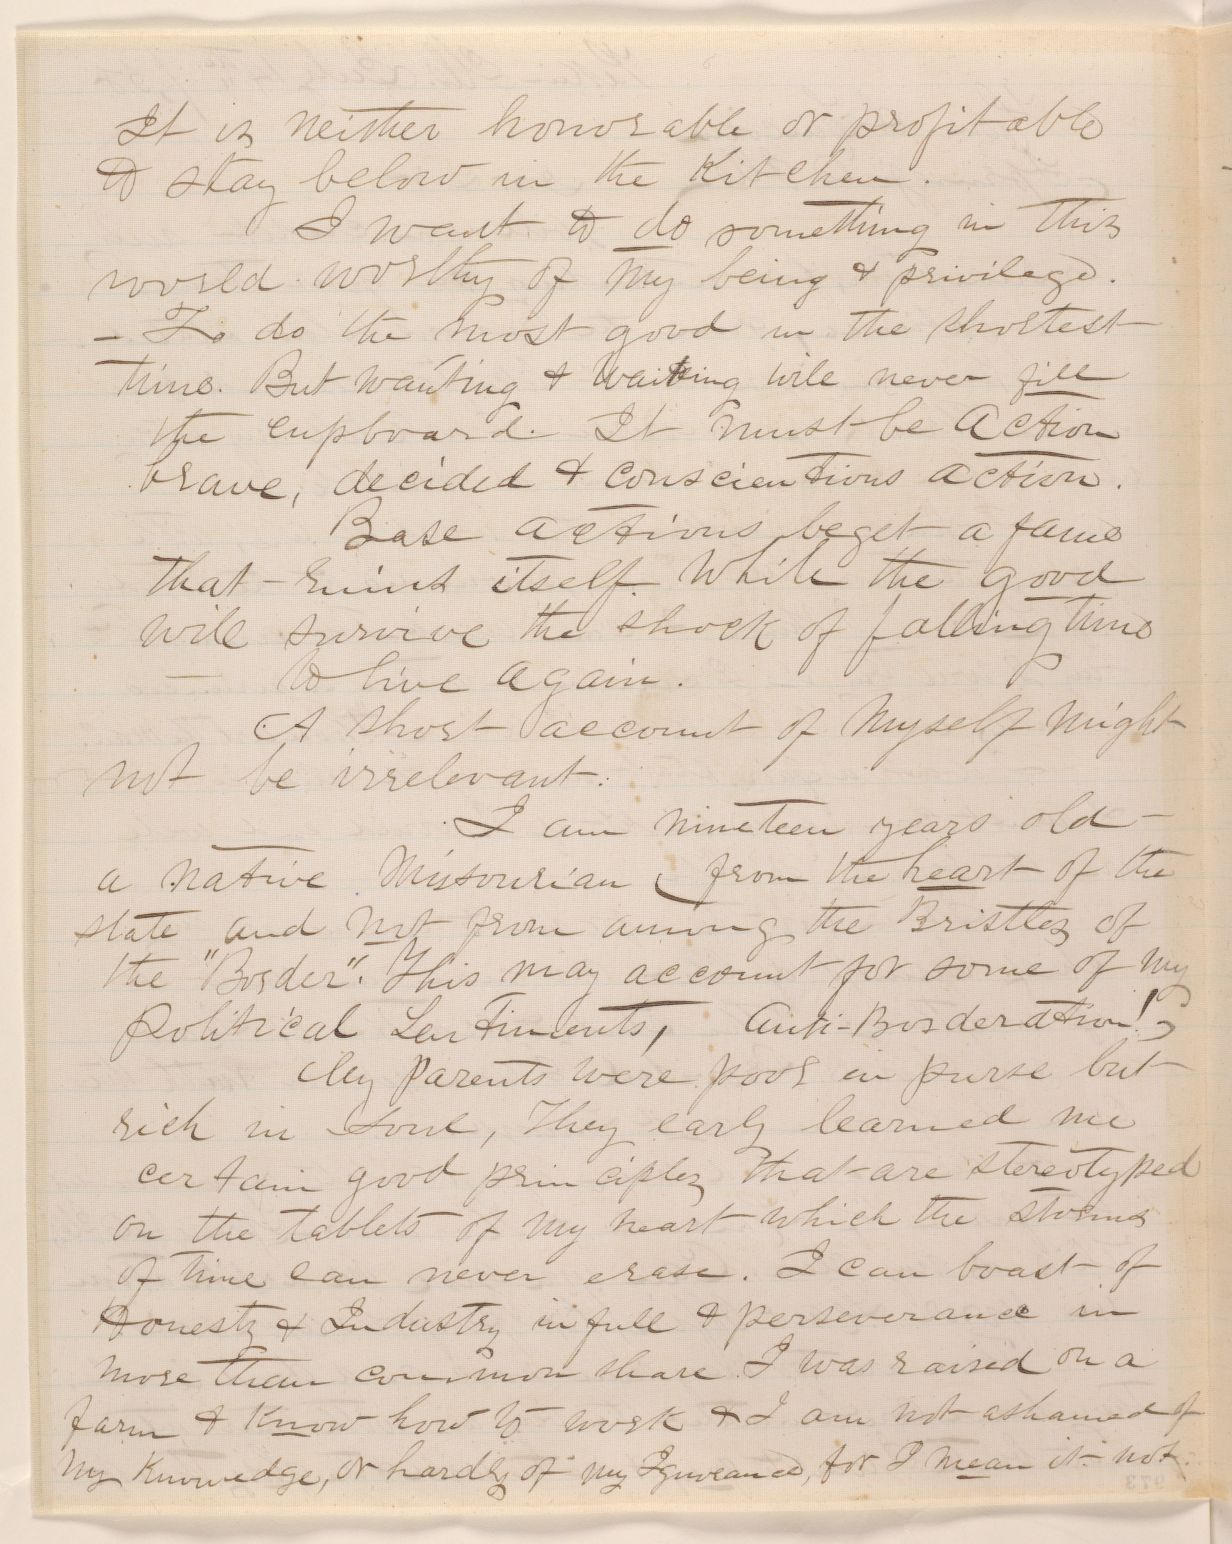 It is neither honorable or profitable
to stay below in the Kitchen.
I want to do something in this
world worthy of my being & privilege.
- To do the most good in the shortest
time. But wanting & waiting will never fill
the cupboard. It must be action
brave, decided & conscientious action.
Base actions beget a fame
that ruins itself. While the good
will survive the shock of falling time
to live again.
A short account of myself might
not be irrelevant:
I am nineteen years old -
a native Missourian (from the heart of the
state and not from among the Bristles of
the "Border". This may account for some of my
Political Sentiments, Anti-Borderation!)
My Parents were poor in purse but
rich in soul, They early learned me
certain good principles that are stereotyped
on the tablets of my heart which the storms
of time can never erase. I can boast of
Honesty & Industry in full & perseverance in
more than common share. I was raised on a
farm & Know how to work & I am not ashamed of
my Knowledge, or hardly of my Ignorance, for I mean it not.